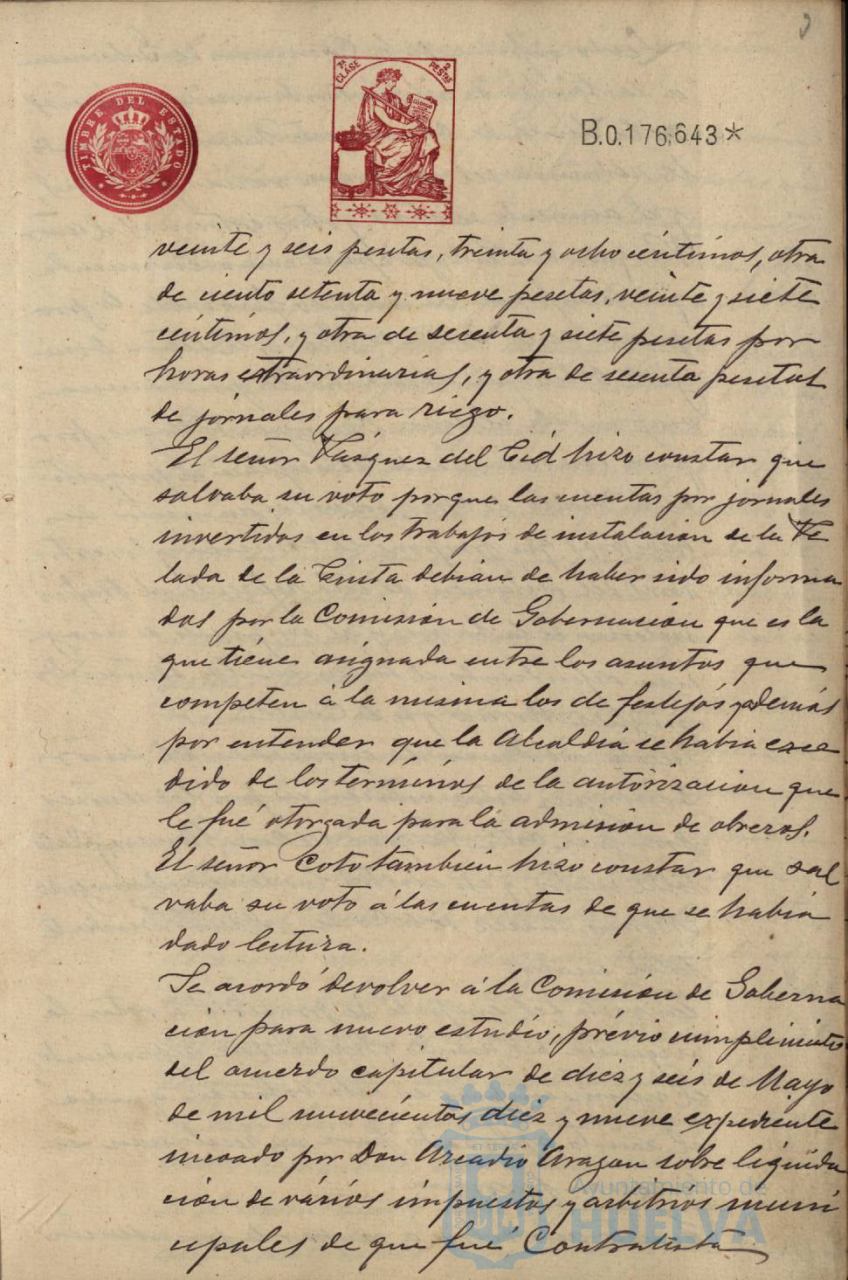 TIMBRE DEL ESTADO
7ª CLASE 2 PESTAS
B.0.176,643*
veinte y seis pesetas, treinta y ocho céntimos, otra
de ciento setenta y nueve pesetas, veinte y siete
céntimos, y otra de sesenta y siete pesetas por
horas extraordinarias, y otra de sesenta pesetas
de jórnales para riego.
El señor Vásquez del Cid hizo constar que
salvaba su voto porque las cuentas por jornales
invertidos en los trabajos de instalacion de la Ve
lada de la Cinta debian de haber sido informa
das por la Comisión de Gobernacion que es la
que tiene asignada entre los asuntos que
competen á la misma los de festejos y además
por entender que la Alcaldia se habia exce
dido de los términos de la autorizacion que
le fué otorgada para la admision de obreros.
El señor Coto tambien hizo constar que sal
vaba su voto á las cuentas de que se habia
dado lectura.
Se acordó devolver á la Comisión de Goberna
cion para nuevo estudio, prévio cumplimiento
del acuerdo capitular de diez y seis de Mayo
de mil novecientos diez y nueve expediente
incoado por Don Arcadio Aragon sobre liquida
ción de vários impuestos y arbitrios muni
cipales de que fué Contratista
Ayuntamiento de
HUELVA